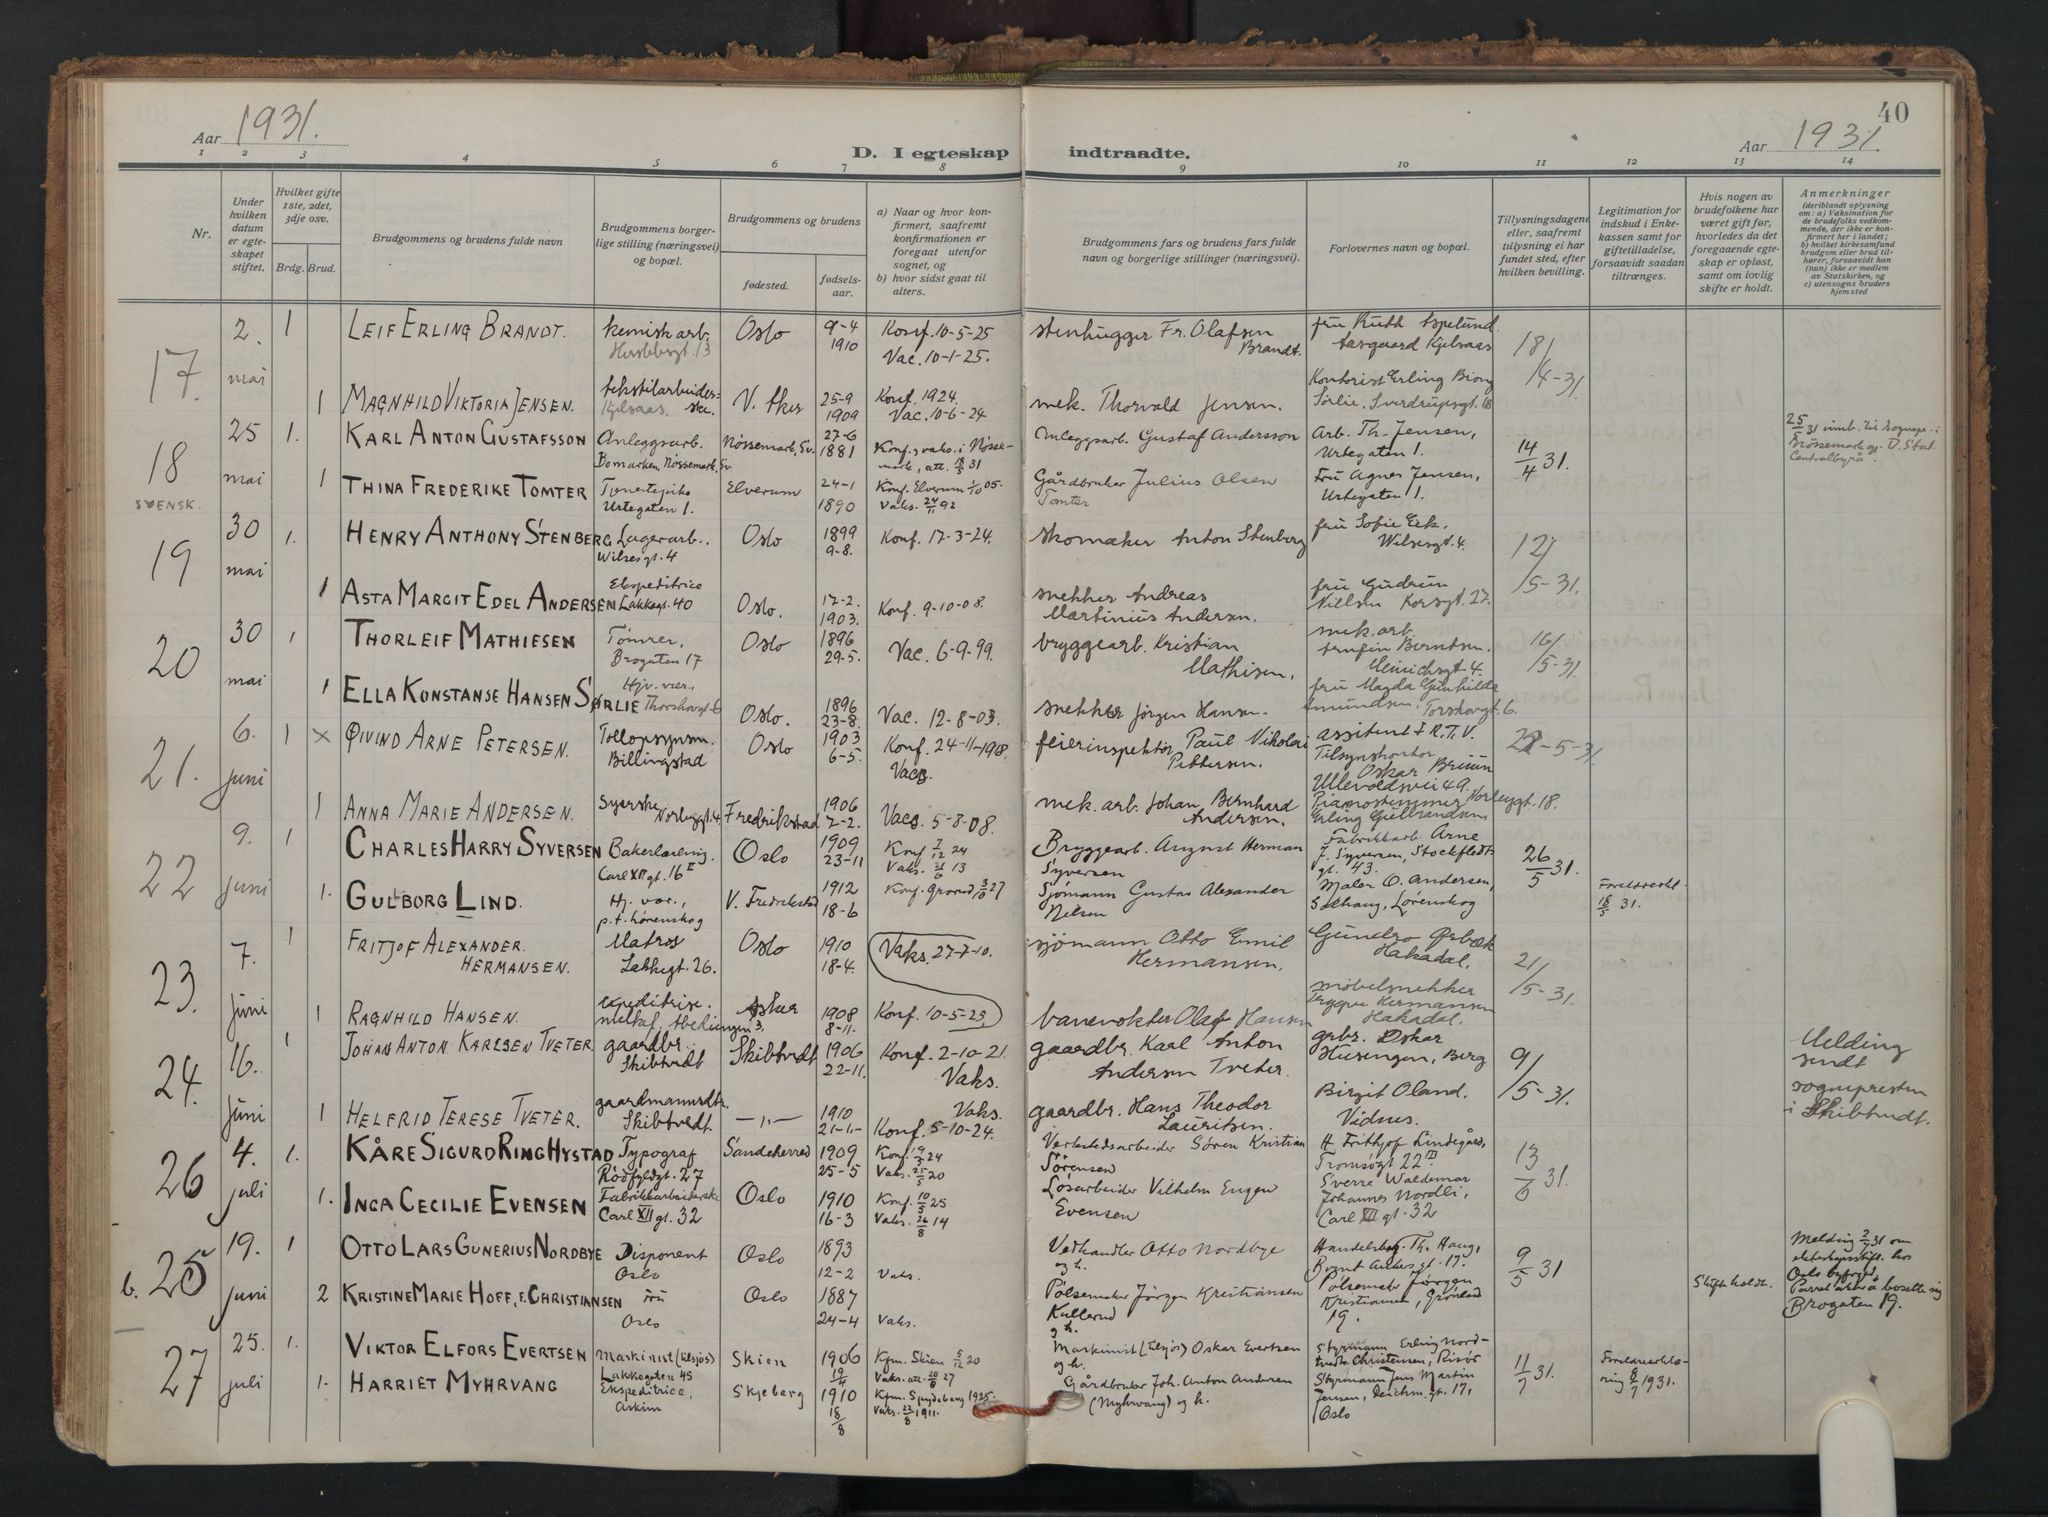 Aar 1931.
D. I egteskap indtraadte.
40
Aar 1931.
1 2 3 4 5 6 7 8 9 10 11 12 13 14
Nr.
Under hvilken datum er egteskapet stiftet.
Hvilket gifte 1ste, 2det, 3dje osv.
Brdg. Brud.
Brudgommens og brudens fulde navn
Brudgommens borgerlige stilling (næringsvei) og bopæl.
Brudgommens og brudens
fødested. fødselsaar.
a) Naar og hvor konfirmert, saafremt konfirmationen er foregaat utenfor sognet, og
b) hvor sidst gaat til alters.
Brudgommens fars og brudens fars fulde navn og borgerlige stillinger (næringsvei).
Forlovernes navn og bopæl.
Tillysningsdagene eller, saafremt tillysning ei har fundet sted, efter hvilken bevilling.
Legitimation for indskud i Enkekassen samt for giftetilladelse, forsaavidt saadan tiltrænges.
Hvis nogen av brudefolkene har været gift før, hvorledes da det foregaaende egteskap er opløst, samt om lovlig skifte er holdt.
Anmerkninger
(deriblandt oplysning om: a) Vaksination for de brudefolks vedkommende, der ikke er konfirmert her i landet; b) hvilket kirkesamfund brudgom eller brud tilhører, forsaavidt han (hun) ikke er medlem av Statskirken, og c) utensogns bruders hjemsted
17. 2. mai 1 LEIF ERLING BRANDT. kemisk arb. Oslo 9-4 1910 Konf. 10-5-25 Vac. 10-1-25. stenhugger Fr. Olafsen Brandt. fru Ruth Kjelsaas 18/4-31
1 MAGNHILD VIKTORIA JENSEN. tekstilarbeider- Kjelsaas V. Aker 25-9 1909 Konf. 1924. Vac. 10-6-24 mek. Thorvald Jensen. Kontorist Erling Sverdrupsgt. 18
18 SVENSK. 25 mai 1. KARL ANTON GUSTAFSSON Anleggsarb. Bomarken, Nössemark, Sv. Nössemark, Sv. 27-6 1881 Konf. og vaks. i Nössemark, att. 18/5 31 Anleggsarb. Gustaf Andersson Arb. Th. Jensen, Urtegaten 1. 14/4 31. 25/5 31 til sognepr. i Nössemark og D. Stat. Centralbyrå.
1 THINA FREDERIKE TOMTER Urtegaten 1. Elverum 24-1 1890 Konf. Elverum 1/10 05. Vaks. 24/11 92 Gårdbruker Julius Olsen Tomter Fru Agnes Jensen, Urtegaten 1.
19 30 mai 1. HENRY ANTHONY STENBERG Lagerarb. Wilsesgt. 4 Oslo 1899 9-8. Konf. 17-3-24. skomaker Anton Stenberg fru Sofie Eek. Wilsesgt. 4. 12/5-31.
1 ASTA MARGIT EDEL ANDERSEN Ekspeditrice Lakkegt. 40 Oslo. 17-2. 1903. Konf. 9-10-08. snekker Andreas Martinius Andersen. fru Gudrun Nielsen Korsgt. 27.
20 30 mai 1 THORLEIF MATHIESEN Tömrer, Brogaten 17 Oslo 1896 29-5. Vac. 6-9-99. bryggearb. Kristian Mathisen. mek. arb. Berntsen. Heinrichsgt. 4. 16/5-31.
1 ELLA KONSTANSE HANSEN SØRLIE Hjv. vær., Thorshovgt. 6 Oslo. 1896 23-8. Vac. 12-8-03. snekker Jörgen Hansen. fru Magda Gunhilda Amundsen. Torshovgt. 6.
21. 6. juni 1 x ØIVIND ARNE PETERSEN. Tollopsynsm. Billingstad Oslo 1903 6-5. Konf. 24-11-1918. Vacs. feierinspektör Paul Nikolai Pettersen. assistent F.R.T.V. Tilsynskontor Oskar Bruun Ullevoldsvei 49. 22-5-31.
1 ANNA MARIE ANDERSEN. Syerske Norbygt. 4. Fredrikstad 1906 7-2. Vacs. 5-8-08. mek. arb. Johan Bernhard Andersen. Pianostemmer Norbygt. 18. Erling Gulbrandsen
22 9. juni 1 CHARLES HARRY SYVERSEN Bakerlærling. Carl XII gt. 16 II Oslo 1909 23-11 Konf 7/12 24 Vaks. 21/6 13 Bryggearb. August Herman Syversen Fabrikkarb. Arne F. Syversen, Stockfleths gt. 43. 26/5 31.
1. GULBORG LIND. Hj. vær., p.t. Lørenskog V. Fredrikstad 1912 18-6 Konf. Grorud 3/10 27 Sjömann Gustav Alexander Nilsen Maler O. Andersen, Solhaug, Lørenskog 18/5 31.
23. 7. juni 1 FRITJOF ALEXANDER HERMANSEN. Matros Lakkegt. 26. Oslo 1910 18-4. Vaks. 27-7-10. sjömann Otto Emil Hermansen. Hakadal. 21/5-31.
1 RAGNHILD HANSEN. expeditrise. Asker 1908 8-11. Konf. 10-5-23. banevokter Olaf Hansen möbelsnekker Trygve Hermansen Hakadal.
24. 16. juni 1 JOHAN ANTON KARLSEN TVETER. gaardbr. Skibtvedt Skibtvedt 1906 22-11. Konf. 2-10-21. Vaks. gaardbr. Karl Anton Andersen Tveter. grbr. Oskar Husengen, Berg 9/5-31. Melding sendt sognepresten i Skibtvedt.
1 HELFRID TERESE TVETER. gaardmannsdtr. Skibtvedt. -"- 1910 21-1- Vaks. Konf. 5-10-24. gaardbr. Hans Theodor Lauritsen. Birgit Oland. Vidnes.
26 4. juli 1. KÅRE SIGURD RING HYSTAD Typograf Rödfyldgt. 27 Sandeherred 1909 25-5 Konf. 24 Vaks. 25/5 20 Verkstedsarbeider Sören Kristian Sörensen H. Frithjof Lindegård, Tromsögt 22 II 13/6 31.
1. INGA CECILIE EVENSEN Fabrikkarbeiderske Carl XII gt. 32 Oslo 1910 16-3 Konf. 10/5 25 Vaks. 26/8 14 Lösarbeider Vilhelm Eugen Evensen Sverre Waldemar Johannes Nordli, Carl XII gt. 32
b. 25 19. juni 1 OTTO LARS GUNERIUS NORDBYE Disponent Oslo Oslo 1893 12-2 Vaks. Vedhandler Otto Nordbye og h. Handelsbog. Th. Haug, Bernt Ankersgt. 17. 9/5 31 Melding 2/7 31 om ekteskapsstift. hos Oslo byfoged. Parret akter å bosette sig Brogaten 19.
2 KRISTINE MARIE HOFF, F. CHRISTIANSEN Fru Oslo Oslo 1887 24-4 Vaks. Pölsemaker Jörgen Kristiansen Kullerud og h. Pölsemaker Jörgen Kristiansen, Grönland 19. Skifte holdt.
27 25. juli 1. VIKTOR ELFORS EVERTSEN Maskinist (tilsjøs) Lakkegaten 45 Skien 1906 19/4 Kfm. Skien 5/12 20 Vaks. att. 20/6 27 Maskinist (tilsjøs) Oskar Evertsen og h. Styrmann Erling Nordtvedt Christensen, Risör 11/7 31. Foreldreerklæring 8/7 1931.
1. HARRIET MYHRVANG Ekspeditrice, Askim Skjeberg 1910 18/8 Kfm. Spydeberg 1925. Vaks. 22/8 1911. Gårdbruker Joh. Anton Andersen (Myhrvang) og h. Styrmann Jens Martin Jensen, Deichm. gt. 17, Oslo